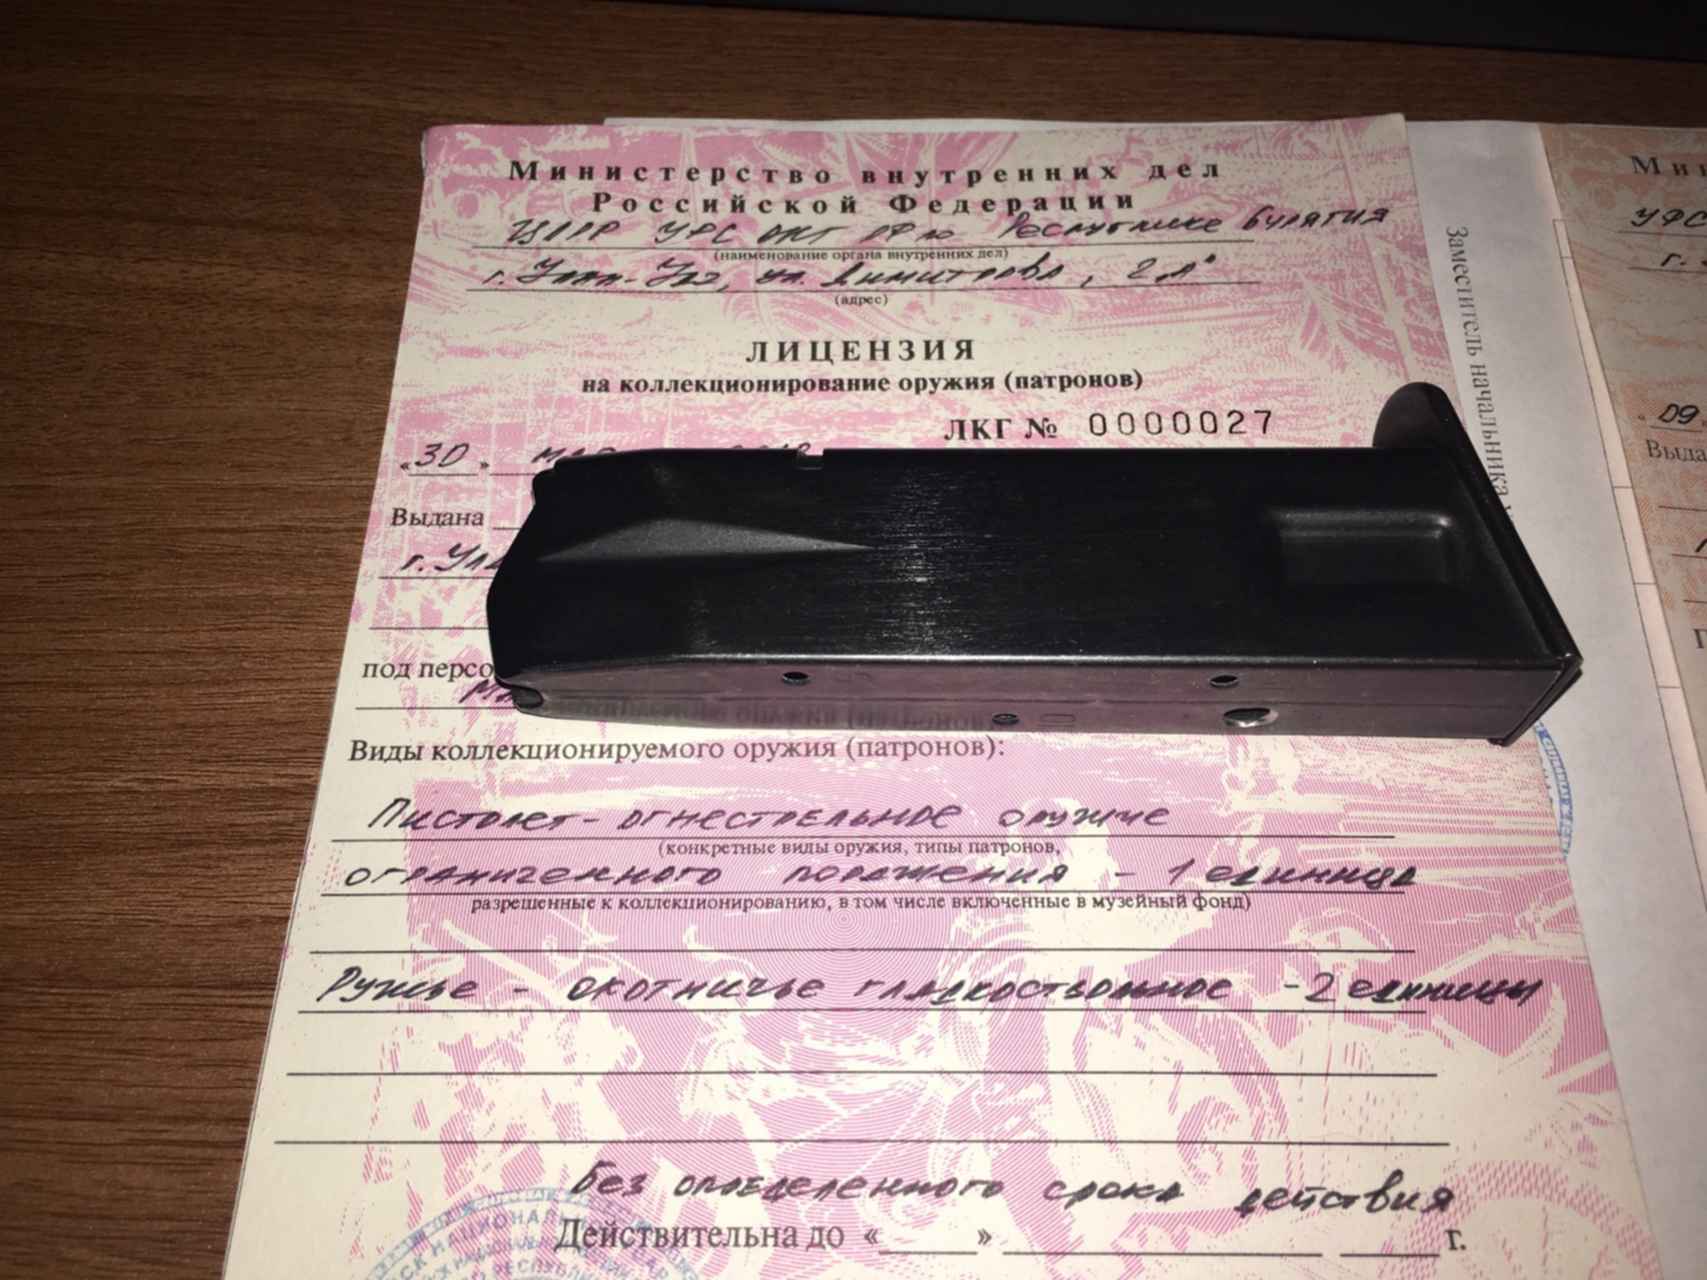 Министерство внутренних дел
Российской Федерации
ЦЛРР УФС ВНГ РФ по Республике Бурятия
(наименование органа внутренних дел)
г. Улан-Удэ, ул. Димитрова, 2 "А"
(адрес)
ЛИЦЕНЗИЯ
на коллекционирование оружия (патронов)
ЛКГ № 0000027
«30»
Выдана
г. Ула
под персо
Виды коллекционируемого оружия (патронов):
Пистолет - огнестрельное оружие
(конкретные виды оружия, типы патронов,
ограниченного поражения - 1 единица
разрешенные к коллекционированию, в том числе включенные в музейный фонд)
Ружье - охотничье гладкоствольное - 2 единицы
Без определенного срока действия
Действительна до «  »  г.
Заместитель начальника
Ми
УФС
г.
09
Выда